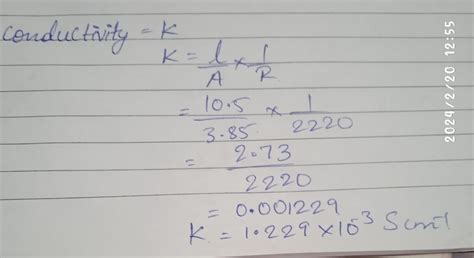 conductivity = K
K = l/A × 1/R
= 10.5/3.85 × 1/2220
= 2.73/2220
= 0.001229
K = 1.229 × 10⁻³ S cm⁻¹
2024/2/20 12:55